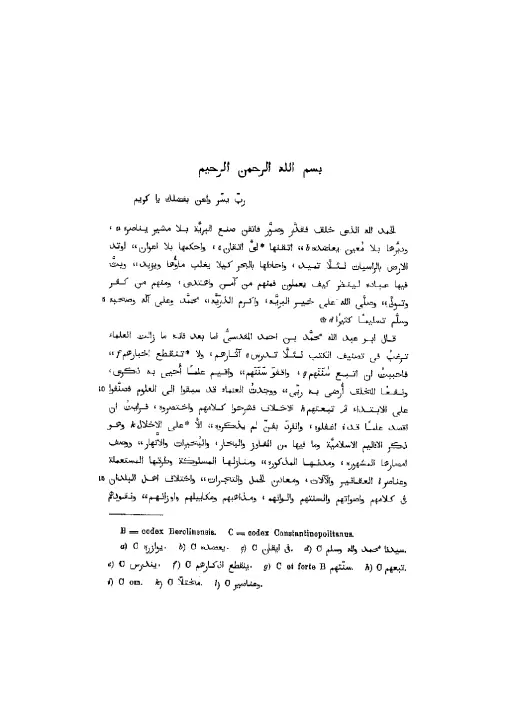 بسم الله الرحمن الرحيم
ربّ يسّر واعن بفضلك يا كريم
الحمد لله الذى خلف فقدّر وصوّر فاتقن صنع البريّة بلا مشير يناصره a ،
ودبّرها بلا مُعين يعاضده b، اتقنها *لىّ اتقان c، واحكمها بلا اعوان،، اوتد
الارض بالراسيات لئلّا تميد، واحاطها بالبحر كيلا يغلب ماؤُها ويزيد،، وبثّ
فيها عباده لينظر كيف يعملون فمنهم من آمن واهتدى، ومنهم من كفر
وتولّى،، وصلّى الله على خير البريّة، واكرم الذريّة،، محمّد وعلى آله وصحبه 5
وسلّم تسليمًا كثيرًا d
قال ابو عبد الله محمّد بن احمد المقدسىّ اما بعد فانه ما زالت العلماء
ترغبُ فى تصنيف الكتب لئلّا تدرس e آثارهم، ولا *تنقطع اخبارهم f،،
فاحببتُ ان اتبع سُنّتهم g، واقفوَ سَنَنهم،، واقيم علمًا أُحيى به ذكرى،
ونفعًا للخلق أُرضى به ربّى،، ووجدتُ العلماء قد سبقوا الى العلوم فصنّفوا 10
على الابتداء، ثم تبعتهم h الاخلاف فشرحوا كلامهم واختصروه، فرايتُ ان
اقصد علمًا قد i اغفلوه، وانفرد بفنّ لم يذكروه،، الّا *على الاخلال k وهو
ذكر الاقاليم الاسلاميّة وما فيها من المفاوز والبحار، والبُحيرات والأَنهار،، ووصف
امصارها المشهورة، ومدنها المذكورة،، ومنازلها المسلوكة وطرقها المستعملة
وعناصر l العقاقير والآلات، ومعادن الحمل والتجارات،، واختلاف اهل البلدان 15
فى كلامهم واصواتهم والسنتهم والوانهم، ومذاهبهم ومكاييلهم واوزانهم،، ونقودهم
B = codex Berolinensis. C = codex Constantinopolitanus.
a) C يوازره. b) C يعضده. c) C فى ايقان. d) C سيدنا محمد واله وسلم.
e) C يندرس. f) C ينقطع اذكارهم. g) C et forte B سنّتهم. h) C تبعهم.
i) C om. k) C مختلًا. l) C وعناصير.